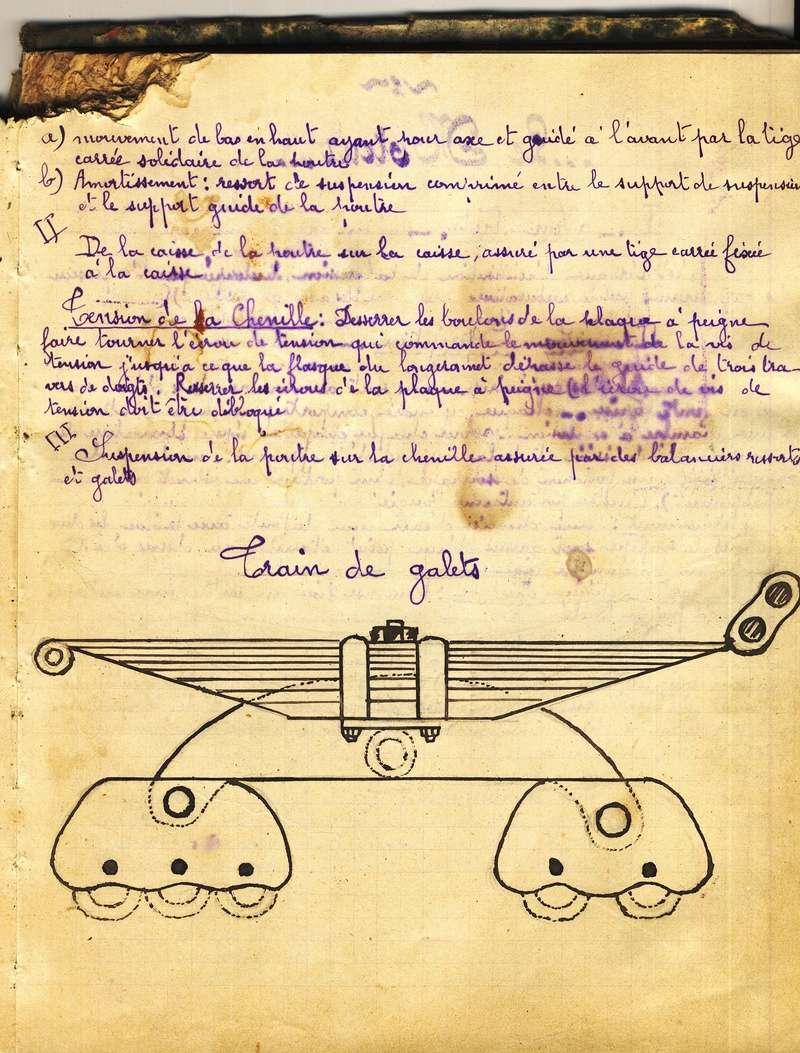 a) mouvement de bas en haut ayant pour axe et guidé à l'avant par la tige
carrée solidaire de la poutre
b) Amortissement : ressort de suspension comprimé entre le support de suspension
et le support guide de la poutre
II
De la caisse, de la poutre sur la caisse, assuré par une tige carrée fixée
à la caisse
Tension de la Chenille : Desserrer les boulons de la plaque à peigne
faire tourner l'écrou de tension qui commande le mouvement de la vis de
tension jusqu'à ce que la flasque du longeronet dépasse le guide de trois tra-
vers de doigts. Resserrer les écrous de la plaque à peigne (l'écrou de vis de
tension doit être débloqué
III
Suspension de la poutre sur la chenille assurée par des balanciers ressorts
et galets
Train de galets